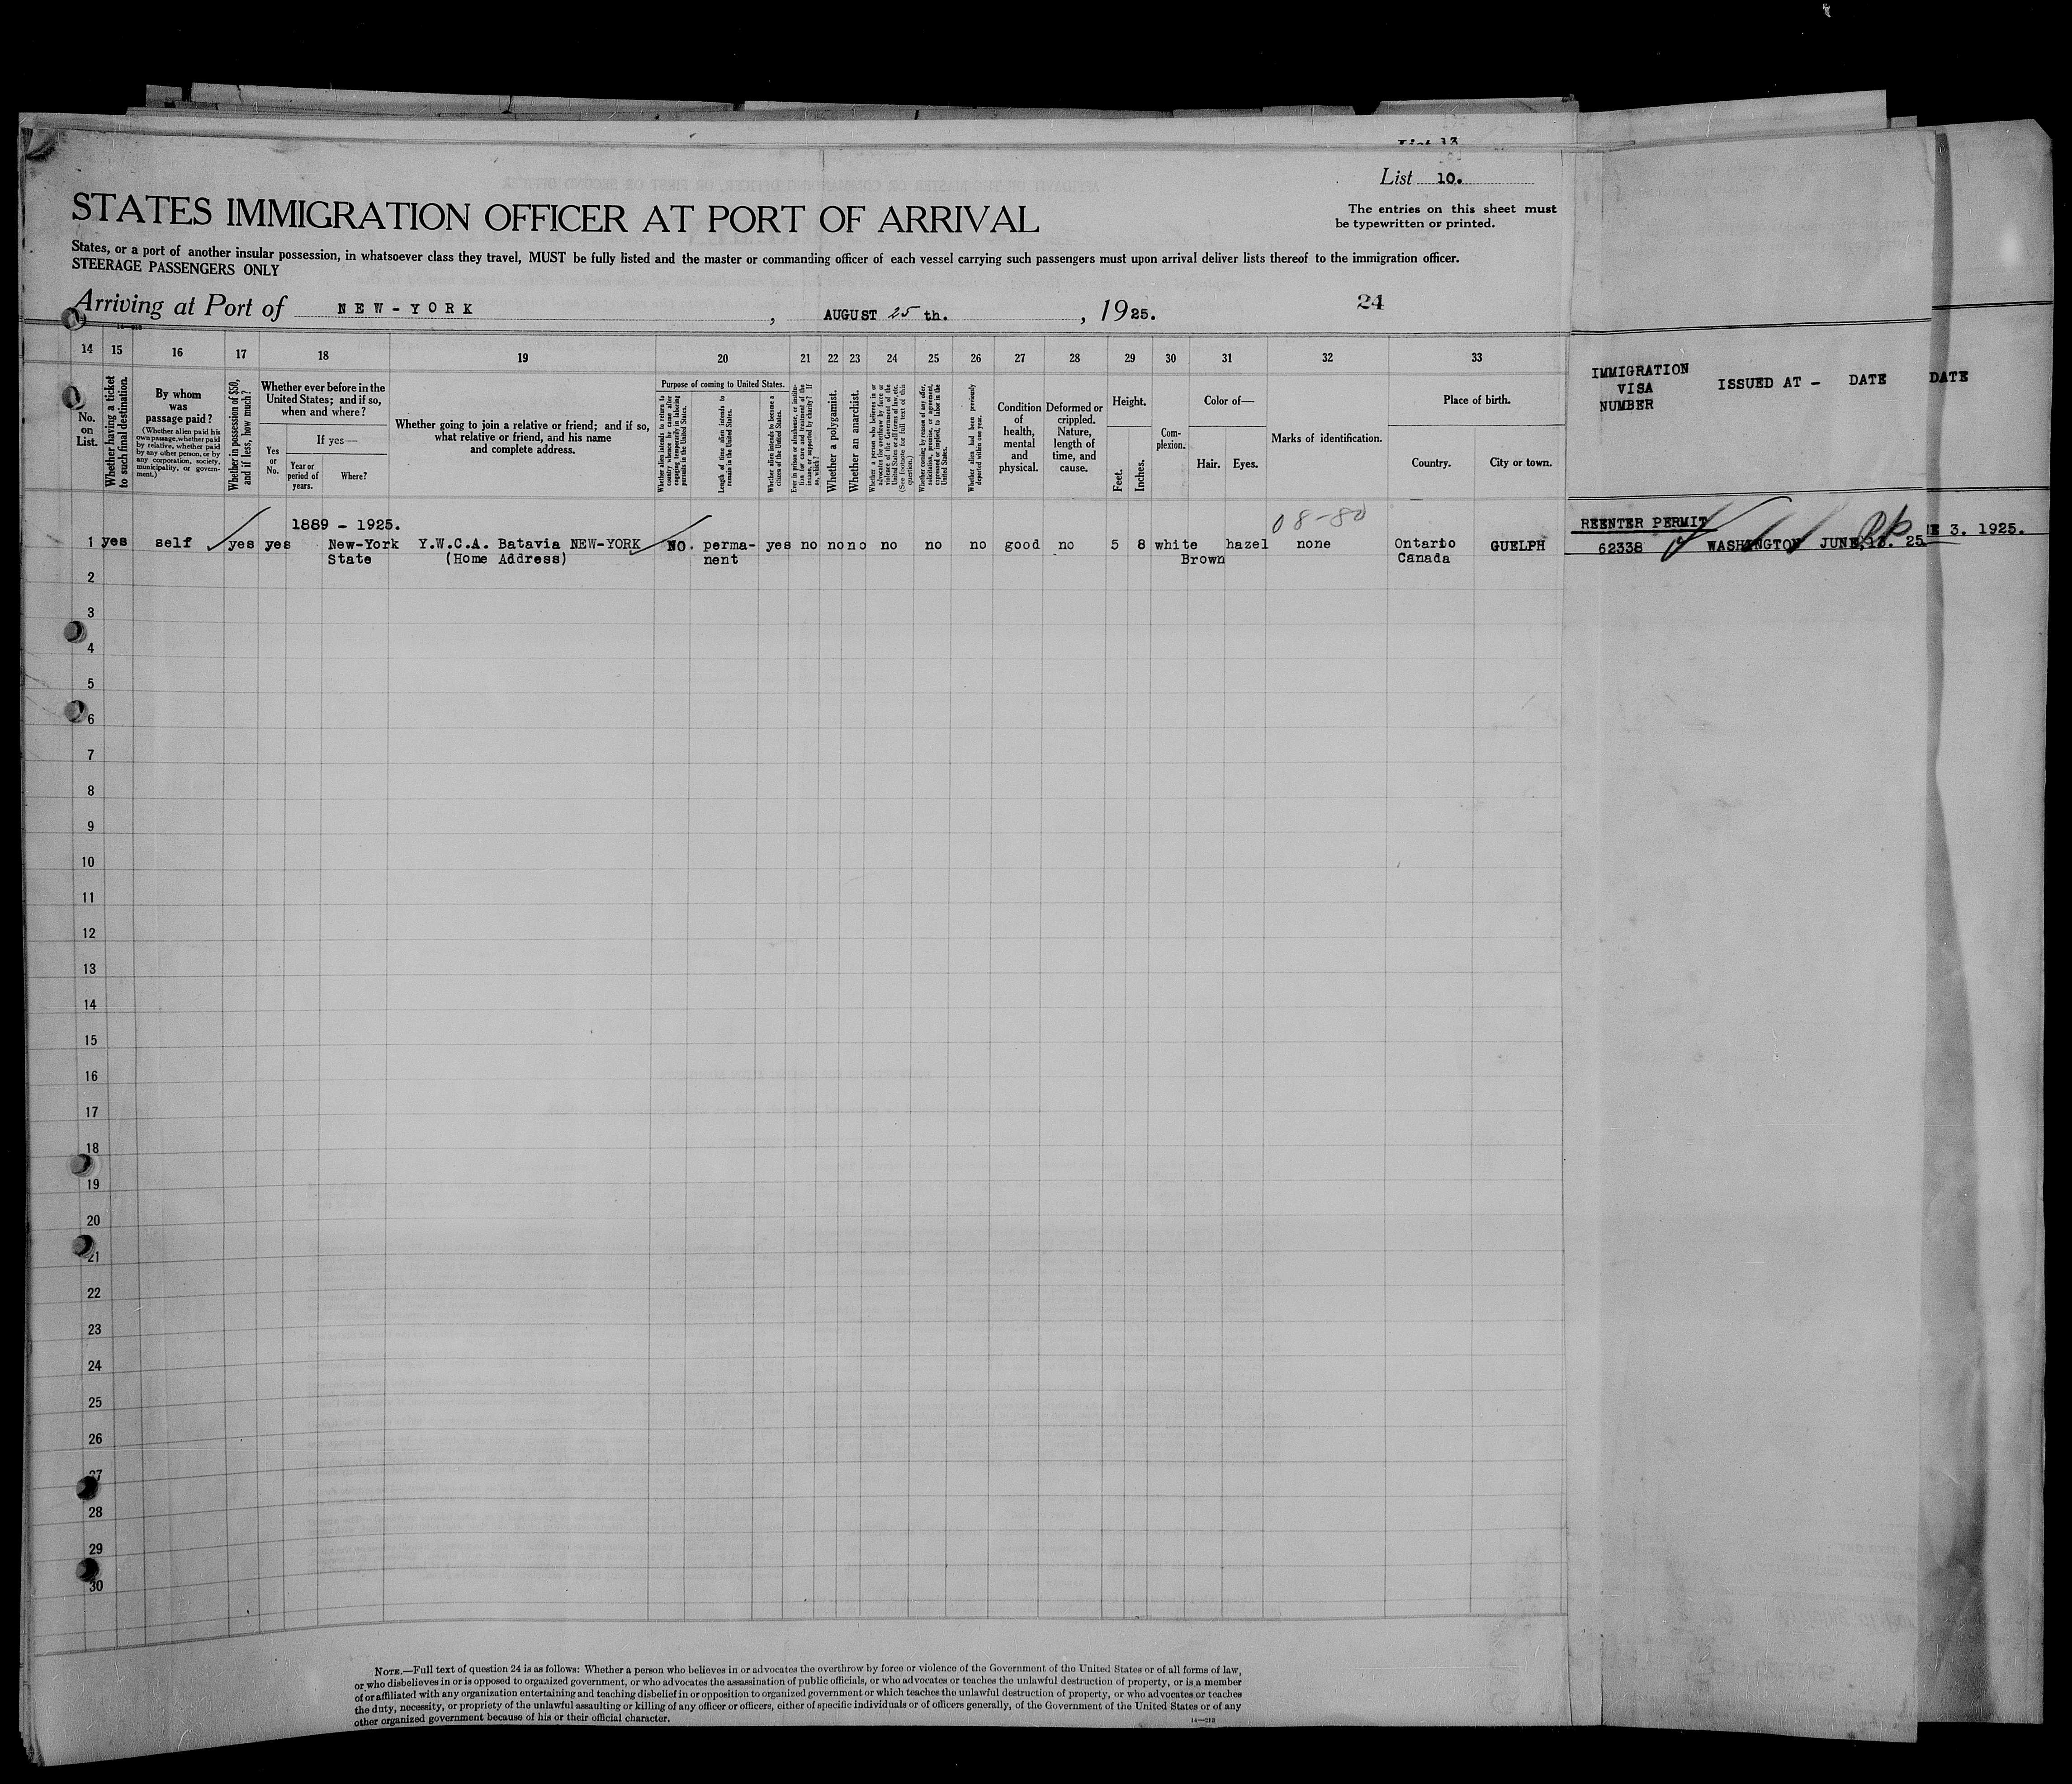 List 13
List 10.
STATES IMMIGRATION OFFICER AT PORT OF ARRIVAL
The entries on this sheet must
be typewritten or printed.
States, or a port of another insular possession, in whatsoever class they travel, MUST be fully listed and the master or commanding officer of each vessel carrying such passengers must upon arrival deliver lists thereof to the immigration officer.
STEERAGE PASSENGERS ONLY
Arriving at Port of NEW-YORK, AUGUST 25 th., 1925.
24
14 15 16 17 18 19 20 21 22 23 24 25 26 27 28 29 30 31 32 33
No. on List.
Whether having a ticket to such final destination.
By whom was passage paid?
(Whether alien paid his own passage, whether paid by relative, whether paid by any other person, or by any corporation, society, municipality, or government.)
Whether in possession of $50, and if less, how much?
Whether ever before in the United States; and if so, when and where?
Yes or No.
If yes—
Year or period of years.
Where?
Whether going to join a relative or friend; and if so, what relative or friend, and his name and complete address.
Purpose of coming to United States.
Whether alien intends to return to country whence he came after engaging temporarily in laboring pursuits in the United States.
Length of time alien intends to remain in the United States.
Whether alien intends to become a citizen of the United States.
Ever in prison or almshouse, or institution for care and treatment of the insane, or supported by charity? If so, which?
Whether a polygamist.
Whether an anarchist.
Whether a person who believes in or advocates the overthrow by force or violence of the Government of the United States or all forms of law, etc. (See footnote for full text of this question.)
Whether coming by reason of any offer, solicitation, promise, or agreement, expressed or implied, to labor in the United States.
Whether alien had been previously deported within one year.
Condition of health, mental and physical.
Deformed or crippled. Nature, length of time, and cause.
Height.
Feet.
Inches.
Complexion.
Color of—
Hair.
Eyes.
Marks of identification.
Place of birth.
Country.
City or town.
IMMIGRATION
VISA
NUMBER
ISSUED AT - DATE
DATE
08-80
1889 - 1925.
REENTER PERMIT
1 yes self yes yes New-York Y.W.C.A. Batavia NEW-YORK NO. perma- yes no no no no no no good no 5 8 white hazel none Ontario GUELPH 62338 WASHINGTON JUNE, 13. 25 E 3. 1925.
State (Home Address) nent Brown Canada
2
3
4
5
6
7
8
9
10
11
12
13
14
15
16
17
18
19
20
21
22
23
24
25
26
27
28
29
30
NOTE.—Full text of question 24 is as follows: Whether a person who believes in or advocates the overthrow by force or violence of the Government of the United States or of all forms of law,
or who disbelieves in or is opposed to organized government, or who advocates the assassination of public officials, or who advocates or teaches the unlawful destruction of property, or is a member
of or affiliated with any organization entertaining and teaching disbelief in or opposition to organized government or which teaches the unlawful destruction of property, or who advocates or teaches
the duty, necessity, or propriety of the unlawful assaulting or killing of any officer or officers, either of specific individuals or of officers generally, of the Government of the United States or of any
other organized government because of his or their official character.
14—213